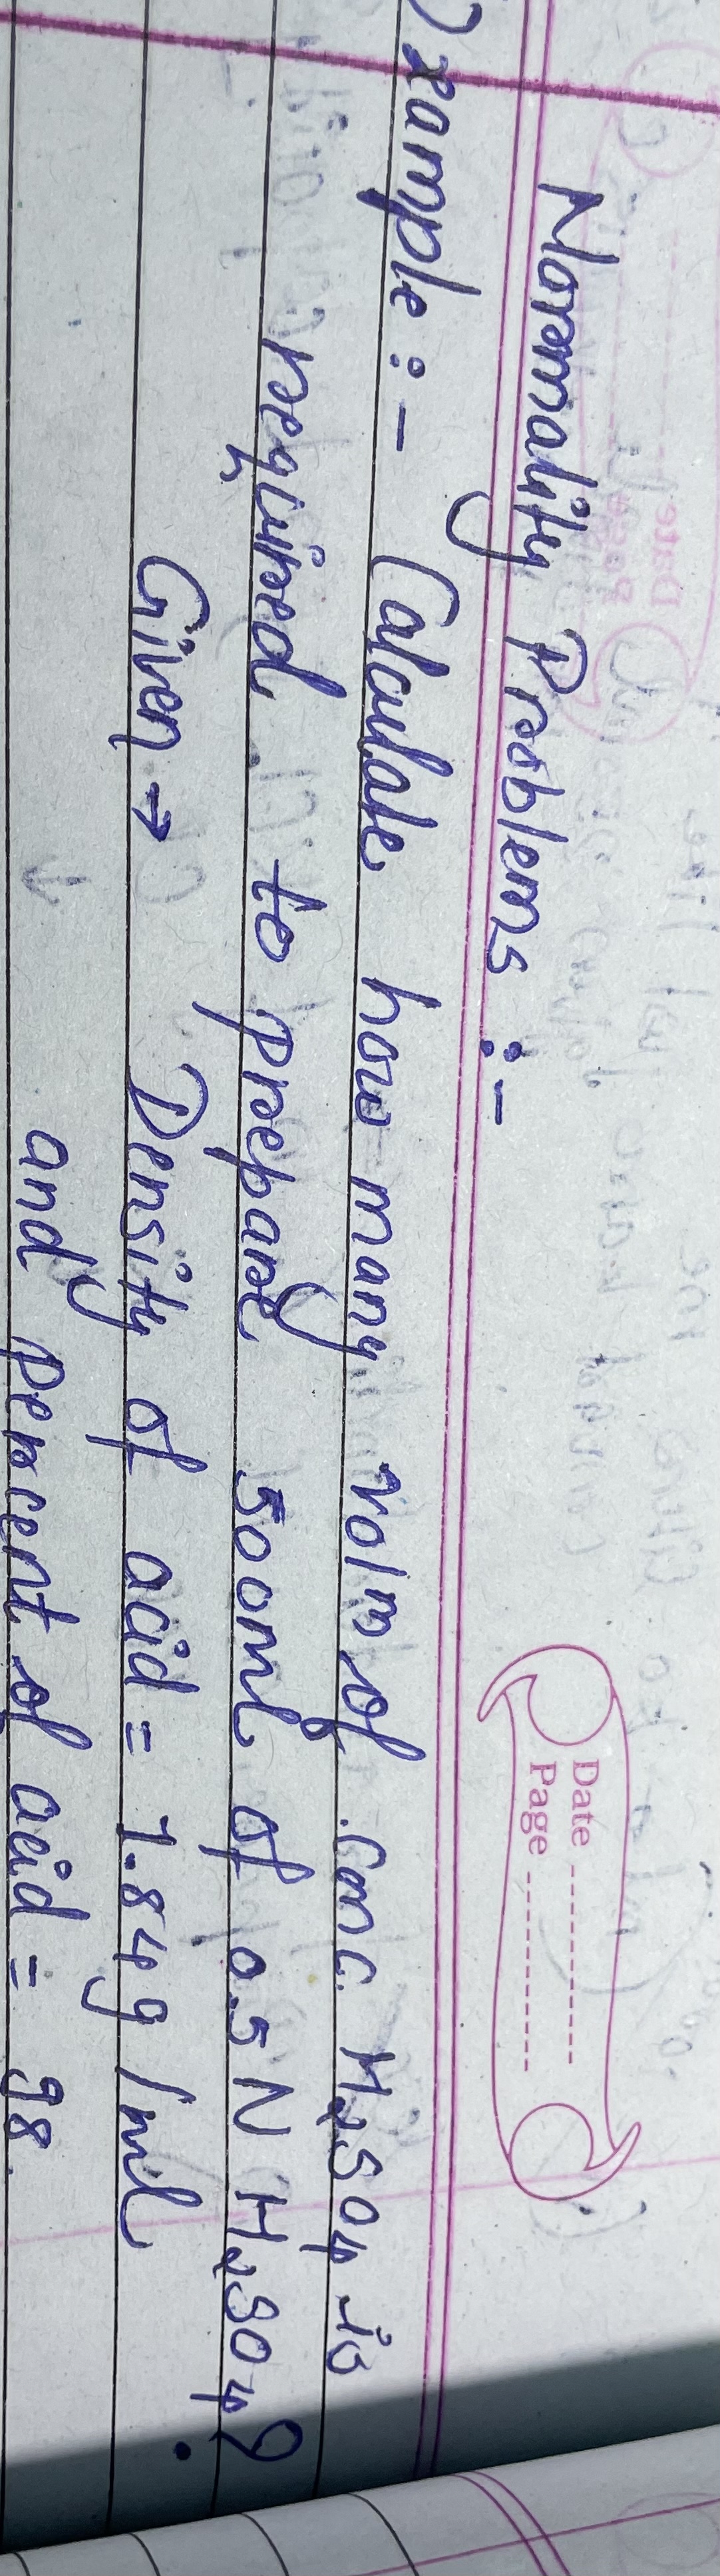 Date
Page
Normality Problems :-
Example :- Calculate how many volm of conc. H2SO4 is
required to prepare 500ml of 0.5 N H2SO4?
Given → Density of acid = 1.84g/ml
and percent of acid = 98.